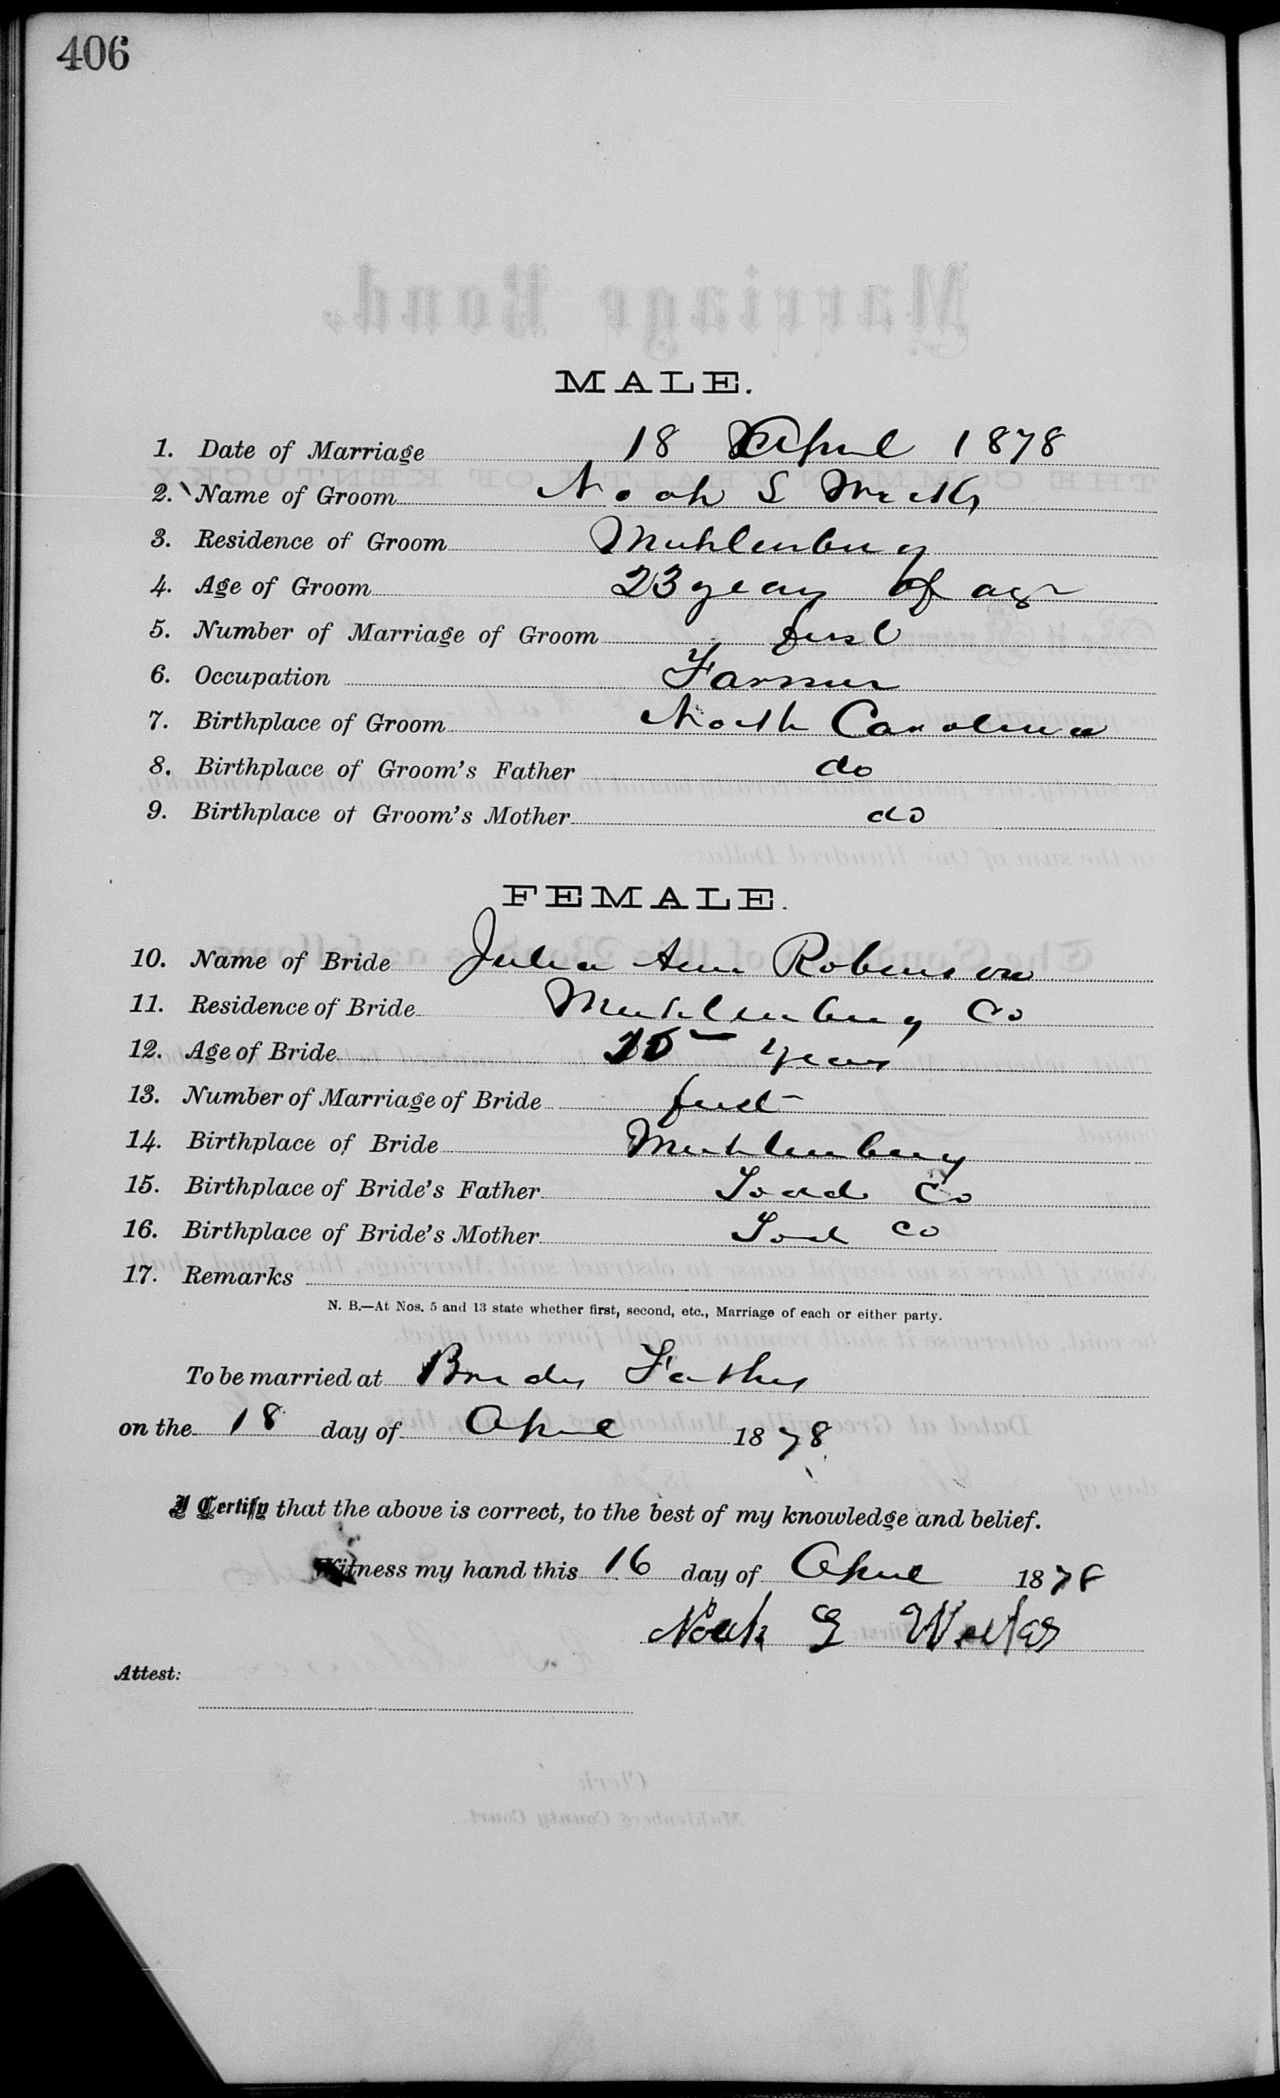 406
MALE.
1. Date of Marriage 18 April 1878
2. Name of Groom Noah S
3. Residence of Groom Muhlenburg
4. Age of Groom 23 years of age
5. Number of Marriage of Groom first
6. Occupation Farmer
7. Birthplace of Groom North Carolina
8. Birthplace of Groom's Father do
9. Birthplace of Groom's Mother do
FEMALE.
10. Name of Bride Julia Ann Robinson
11. Residence of Bride Muhlenburg Co
12. Age of Bride years
13. Number of Marriage of Bride first
14. Birthplace of Bride Muhlenburg
15. Birthplace of Bride's Father Todd Co
16. Birthplace of Bride's Mother Tod Co
17. Remarks
N. B.—At Nos. 5 and 13 state whether first, second, etc., Marriage of each or either party.
To be married at Brides Fathers
on the 18 day of April 1878
I Certify that the above is correct, to the best of my knowledge and belief.
Witness my hand this 16 day of April 1878
Noah
Attest: